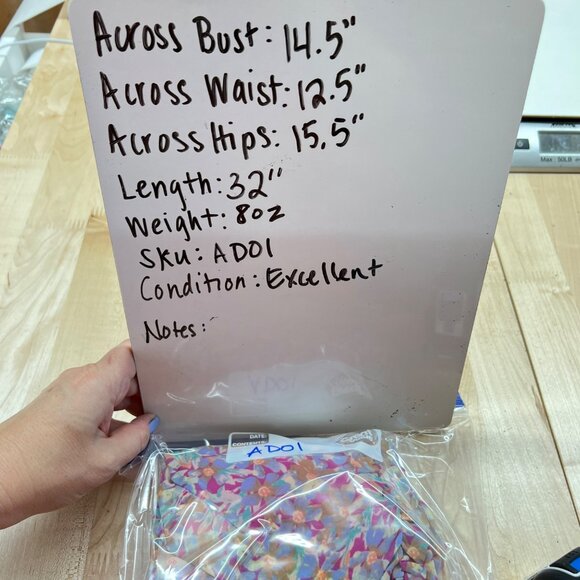 Across Bust: 14.5"
Across Waist: 12.5"
Across Hips: 15.5"
Length: 32"
Weight: 8oz
SKU: AD01
Condition: Excellent
Notes:
Max: 50LB
DATE:
CONTENTS:
AD01